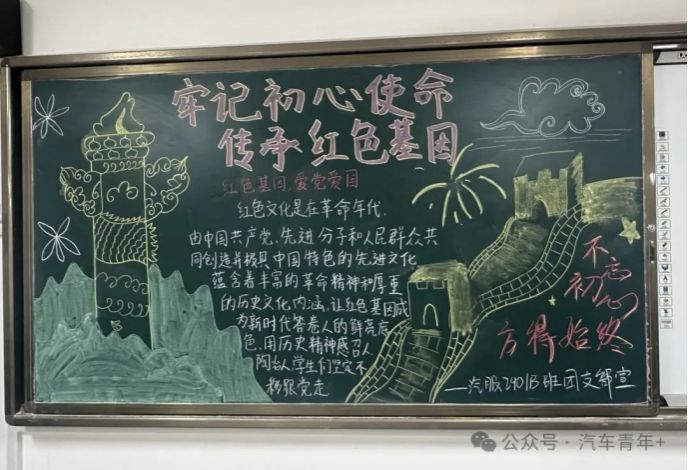 牢记初心使命
传承红色基因
红色基因,爱党爱国
红色文化是在革命年代,
由中国共产党、先进分子和人民群众共
同创造并极具中国特色的先进文化
蕴含着丰富的革命精神和厚重
的历史文化内涵,让红色基因成
为新时代答卷人的鲜亮底
色,用历史精神感召人
陶冶人,学生们坚定不
移跟党走
不忘
初心
方得始终
—汽服2401B班团支部宣
公众号·汽车青年+